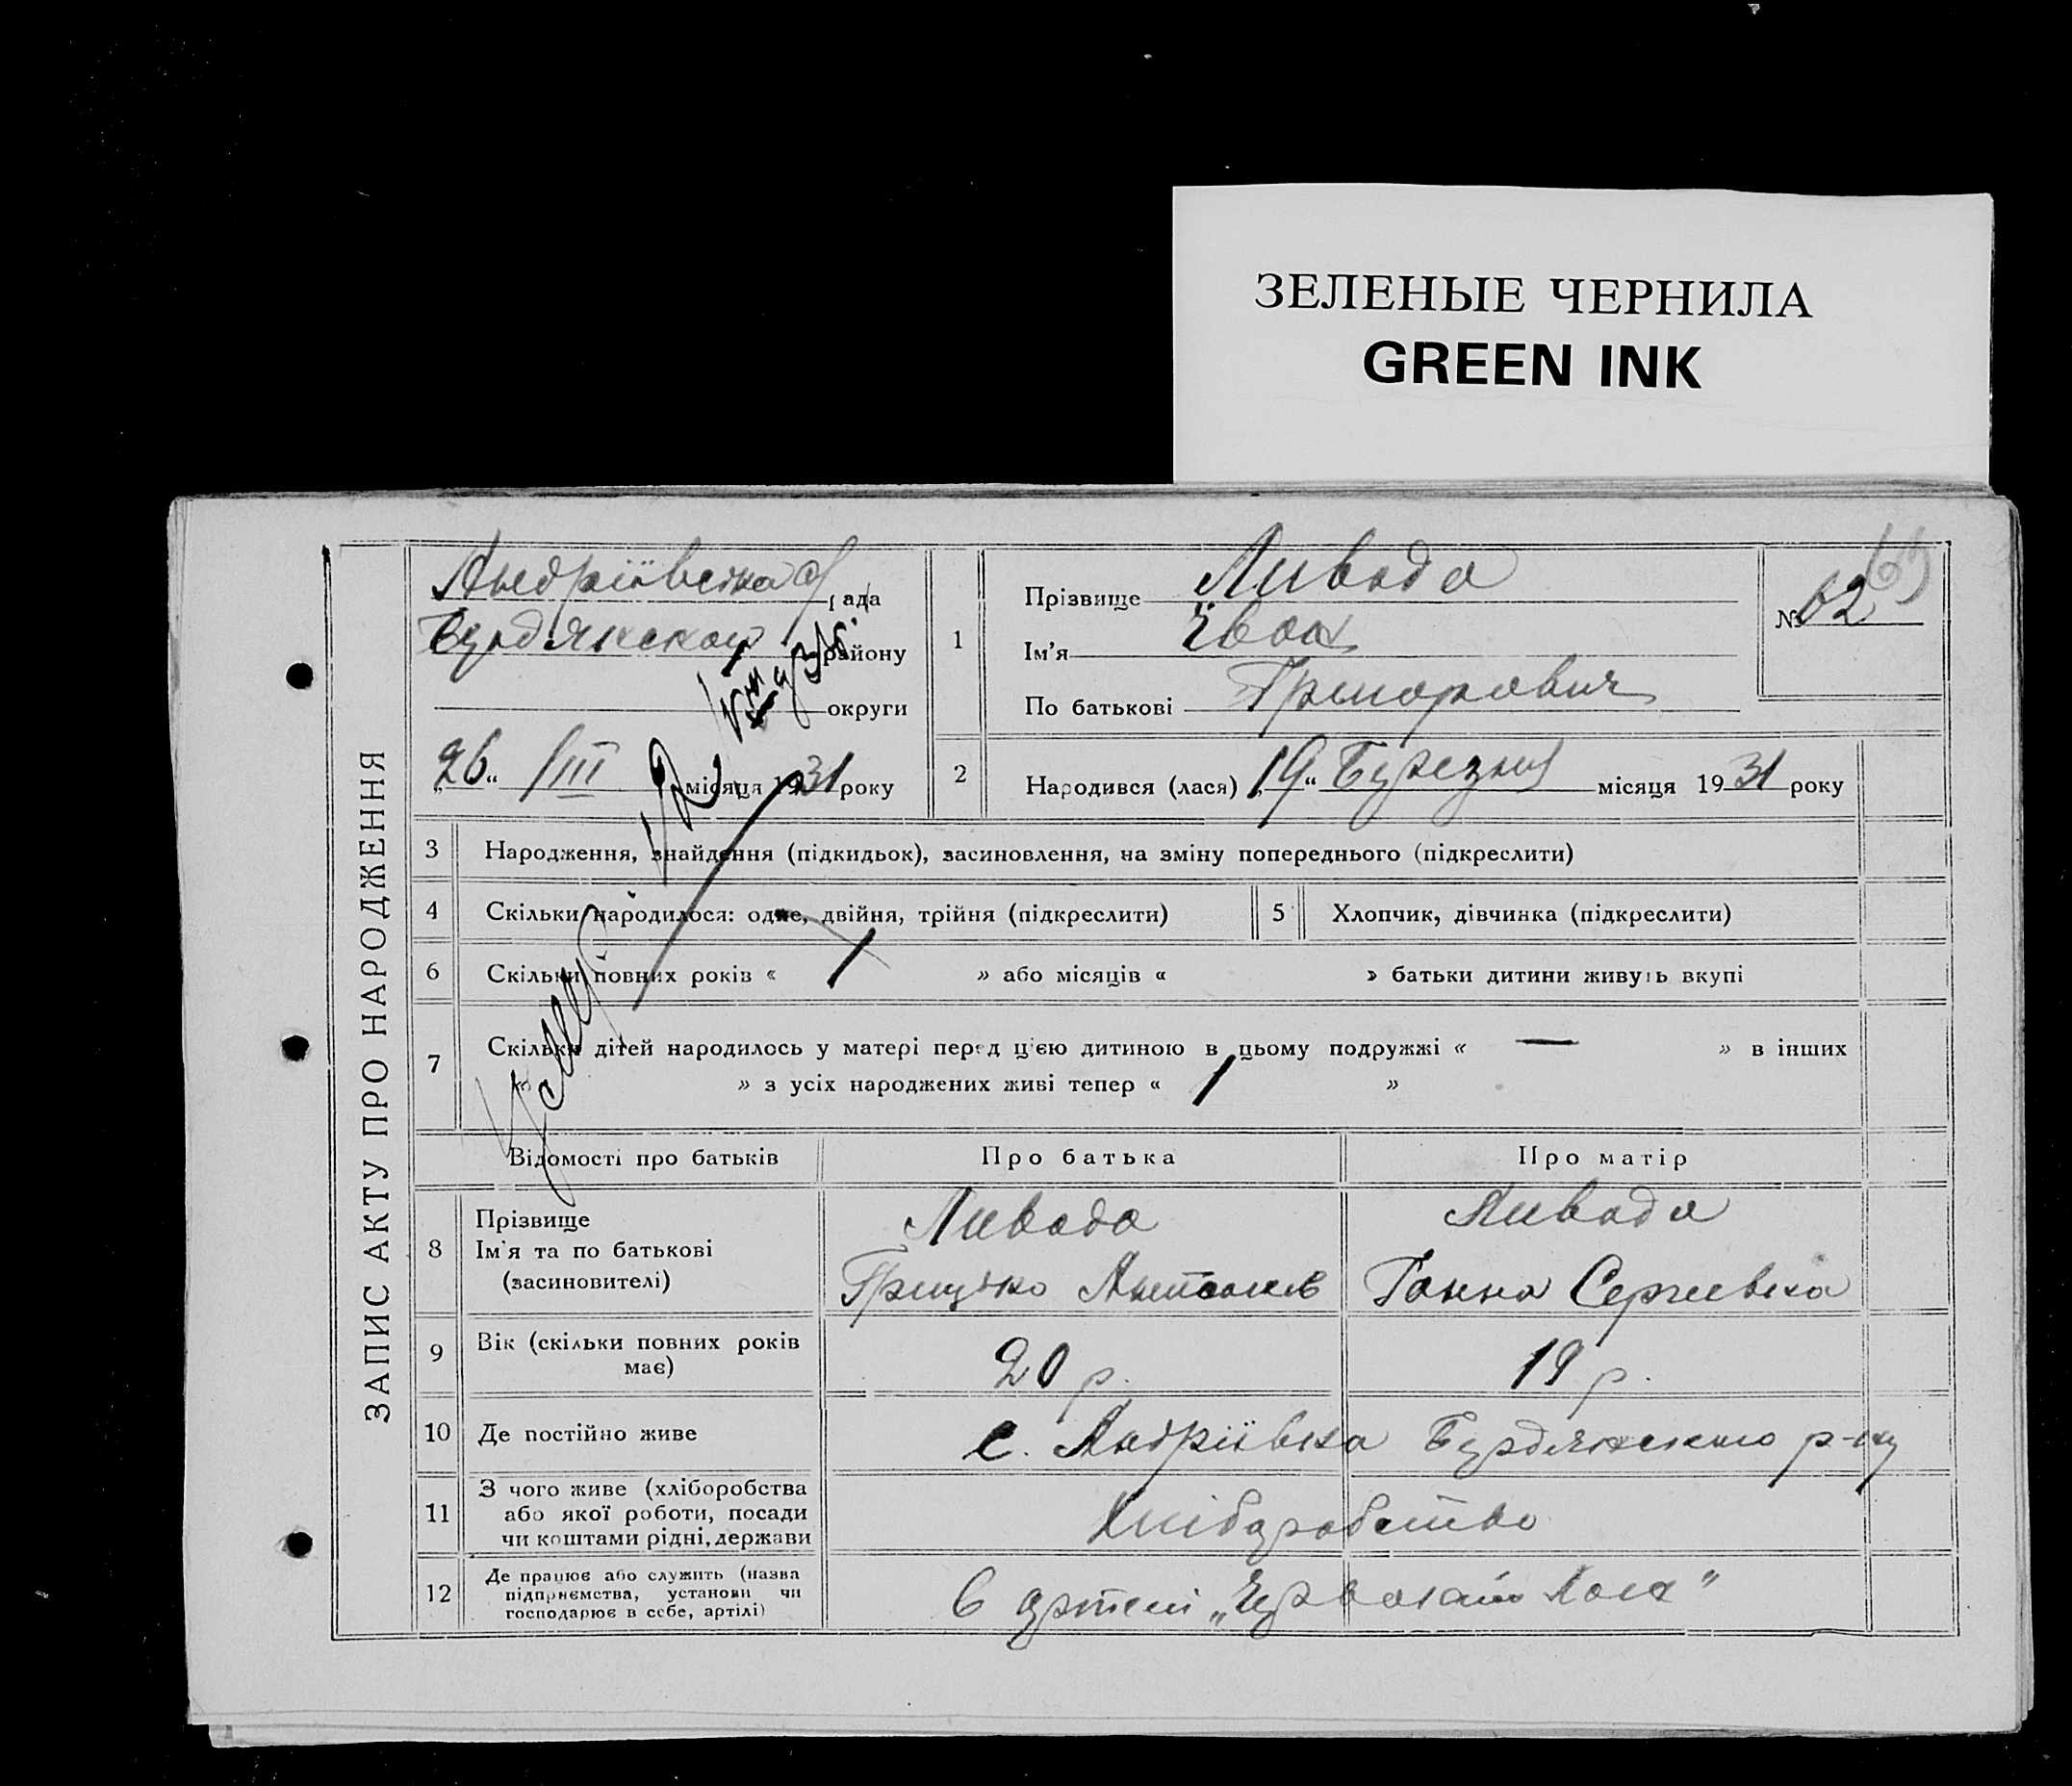 ЗЕЛЕНЫЕ ЧЕРНИЛА
GREEN INK
ЗАПИС АКТУ ПРО НАРОДЖЕННЯ
Андріївська с/рада
Бурдянского району
округи
„26“ /III місяця 1931 року
1
Прізвище Ливада
Ім'я
По батькові Григорович
№ 62
2 Народився (лася) „19“ Березня місяця 1931 року
3 Народження, знайдення (підкидьок), засиновлення, на зміну попереднього (підкреслити)
4 Скільки народилося: одне, двійня, трійня (підкреслити)
5 Хлопчик, дівчинка (підкреслити)
6 Скільки повних років « 1 » або місяців « » батьки дитини живуть вкупі
7 Скільки дітей народилось у матері перед цією дитиною в цьому подружжі « — » в інших
» з усіх народжених живі тепер « 1 »
Відомості про батьків Про батька Про матір
8
Прізвище
Ім'я та по батькові
(засиновителі)
Ливада
Грицько
Ливада
Ганна Сергеевна
9
Вік (скільки повних років
має)
20 р. 19 р.
10 Де постійно живе с. Андріївка Бурдянського р-ну
11
З чого живе (хліборобства
або якої роботи, посади
чи коштами рідні, держави
Хліборобство
12
Де працює або служить (назва
підприємства, установи чи
господарює в себе, артілі)
В артелі